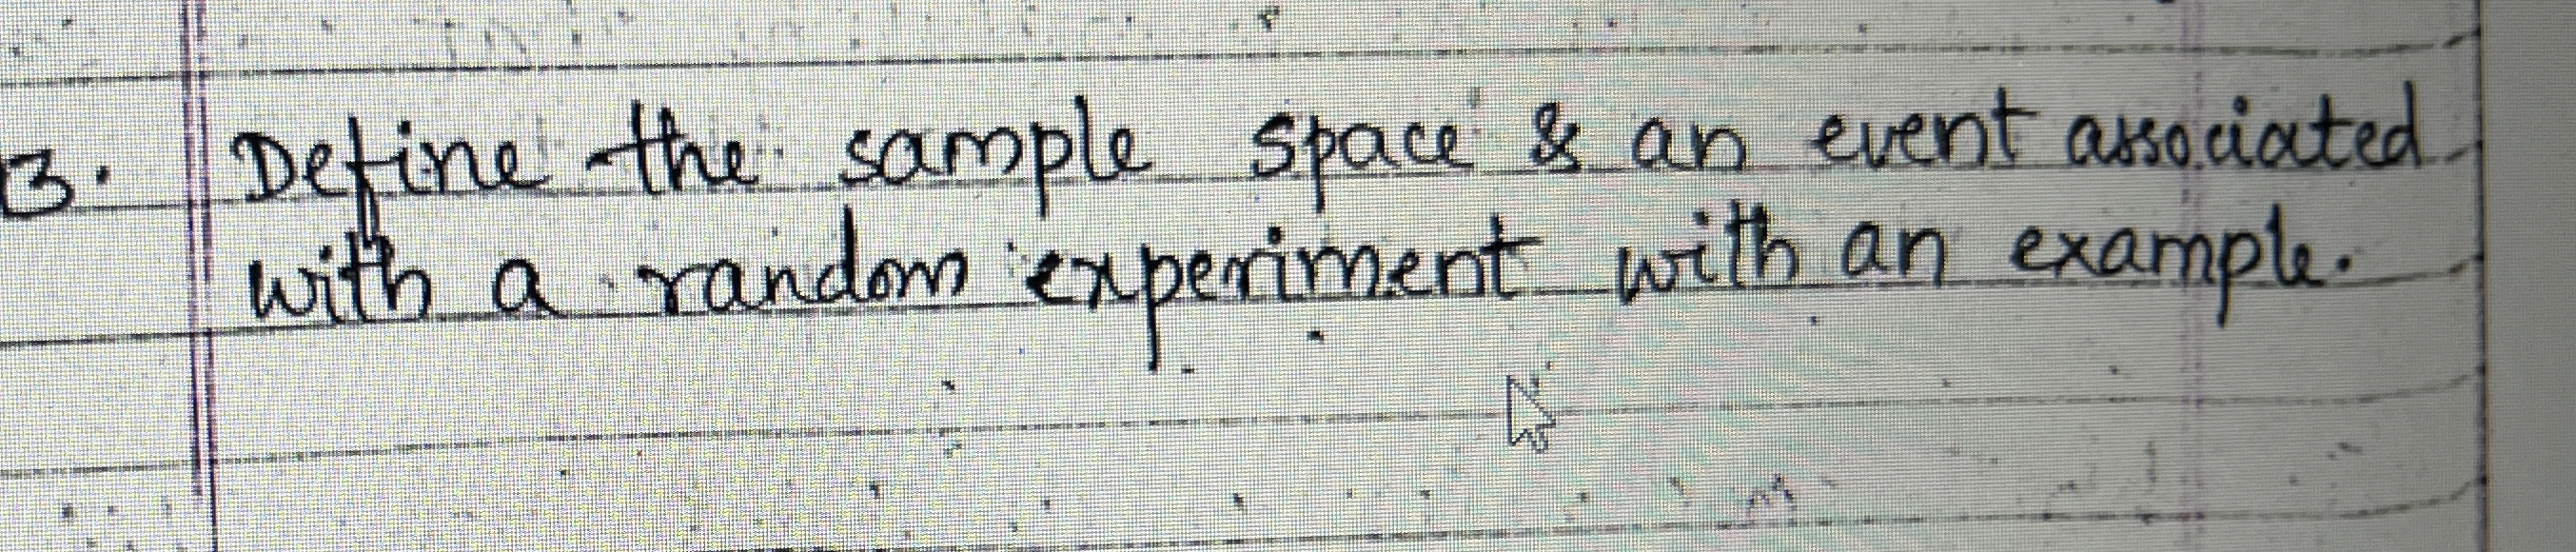 3. Define the sample space & an event associated
with a random experiment with an example.